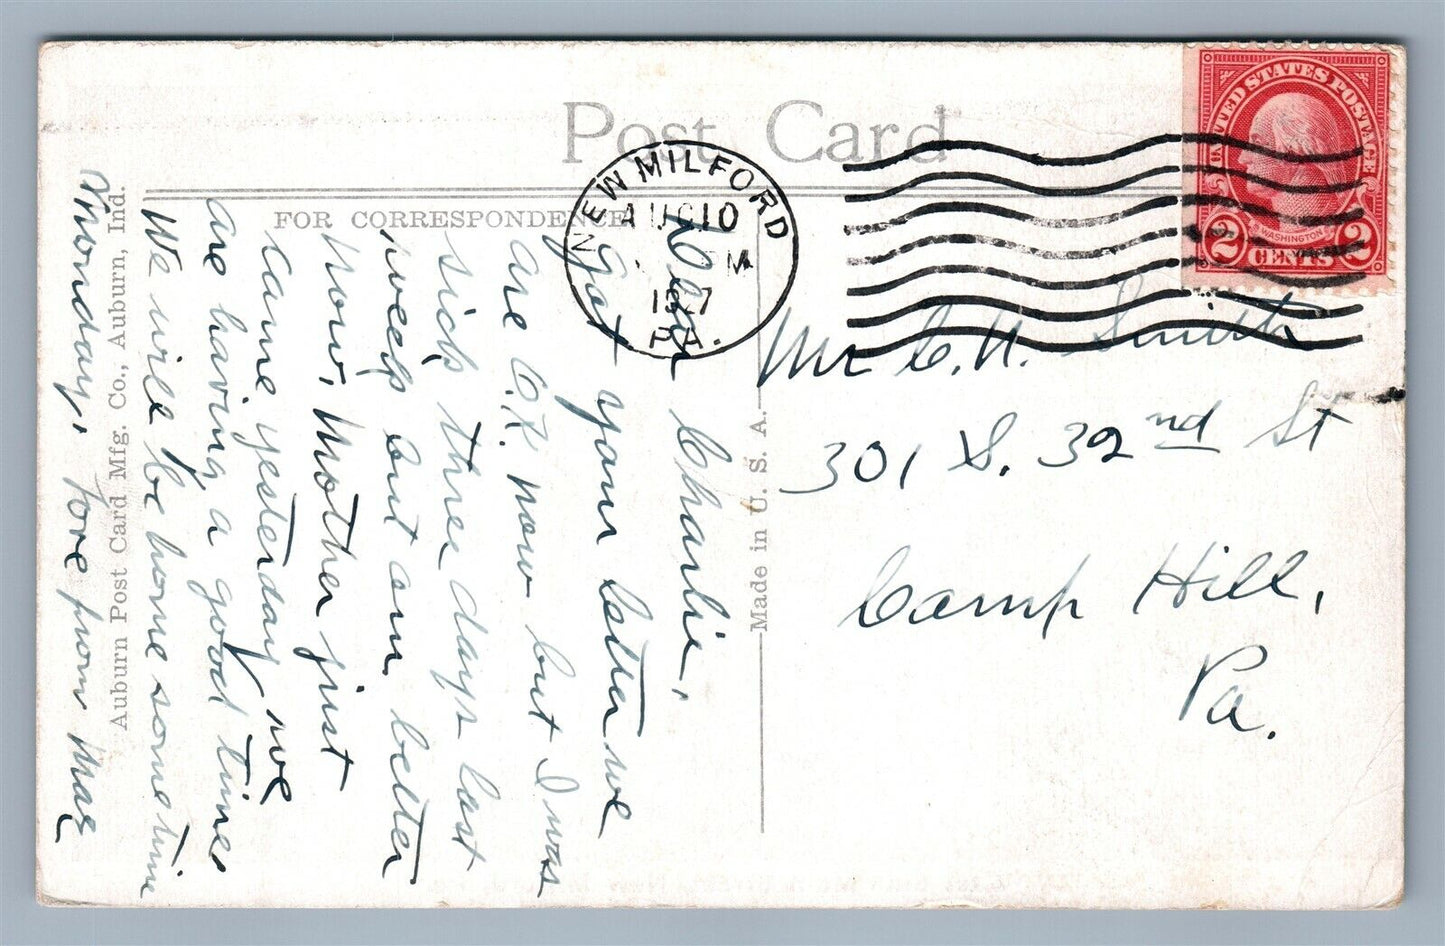 Post Card
FOR CORRESPONDENCE
NEW MILFORD
AUG 10
M
PA.
UNITED STATES POSTAGE
WASHINGTON
2 CENTS 2
Mr C. H. Smith
301 S. 32nd St
Camp Hill,
Pa.
Dear Charlie,
got your letter we
are O.K. now but I was
sick three days last
week but am better
now, Mother just
came yesterday we
are having a good time.
We will be home sometime
Monday, Love from Mae
Made in U. S. A.
Auburn Post Card Mfg. Co., Auburn, Ind.